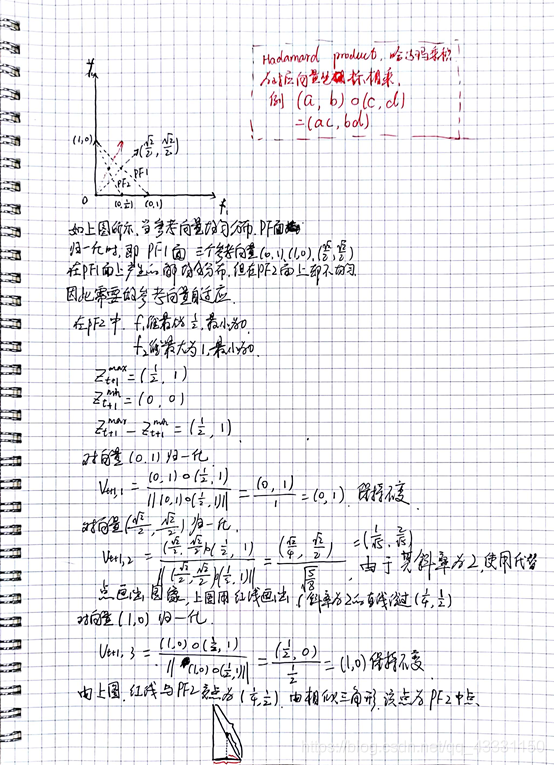 Hadamard product. 哈达玛乘积
对应向量坐标相乘.
例 (a, b)○(c, d)
=(ac, bd)
f₂
(1,0)
(√2/2, √2/2)
PF1
PF2
0
(0,½)
(0,1)
f₁
如上图所示,当参考向量均匀分布,PF面
归一化时,即PF1面 三个参考向量(0,1),(1,0),(√2/2,√2/2)
在PF1面上产生的都均匀分布,但在PF2面上却不均匀
因此需要的参考向量自适应.
在PF2中. f₁维最大为½,最小为0.
f₂维最大为1,最小为0.
Z_{t+1}^{max}=(½, 1)
Z_{t+1}^{min}=(0, 0)
Z_{t+1}^{max}-Z_{t+1}^{min}=(½, 1)
对向量(0,1)归一化.
V_{t+1,1}=(0,1)○(½,1)/||(0,1)○(½,1)||=(0,1)/1=(0,1). 保持不变.
对向量(√2/2,√2/2)归一化.
V_{t+1,2}=(√2/2,√2/2)○(½,1)/||(√2/2,√2/2)○(½,1)||=(√2/4,√2/2)/√(5/8)=(1/√5,2/√5). 由于其斜率为2,使用代替
点画出图象,上图用红线画出(斜率为2的直线过(¼,½)
对向量(1,0)归一化.
V_{t+1,3}=(1,0)○(½,1)/||(1,0)○(½,1)||=(½,0)/½=(1,0)保持不变.
由上图.红线与PF2交点为(¼,½).由相似三角形.该点为PF2中点.